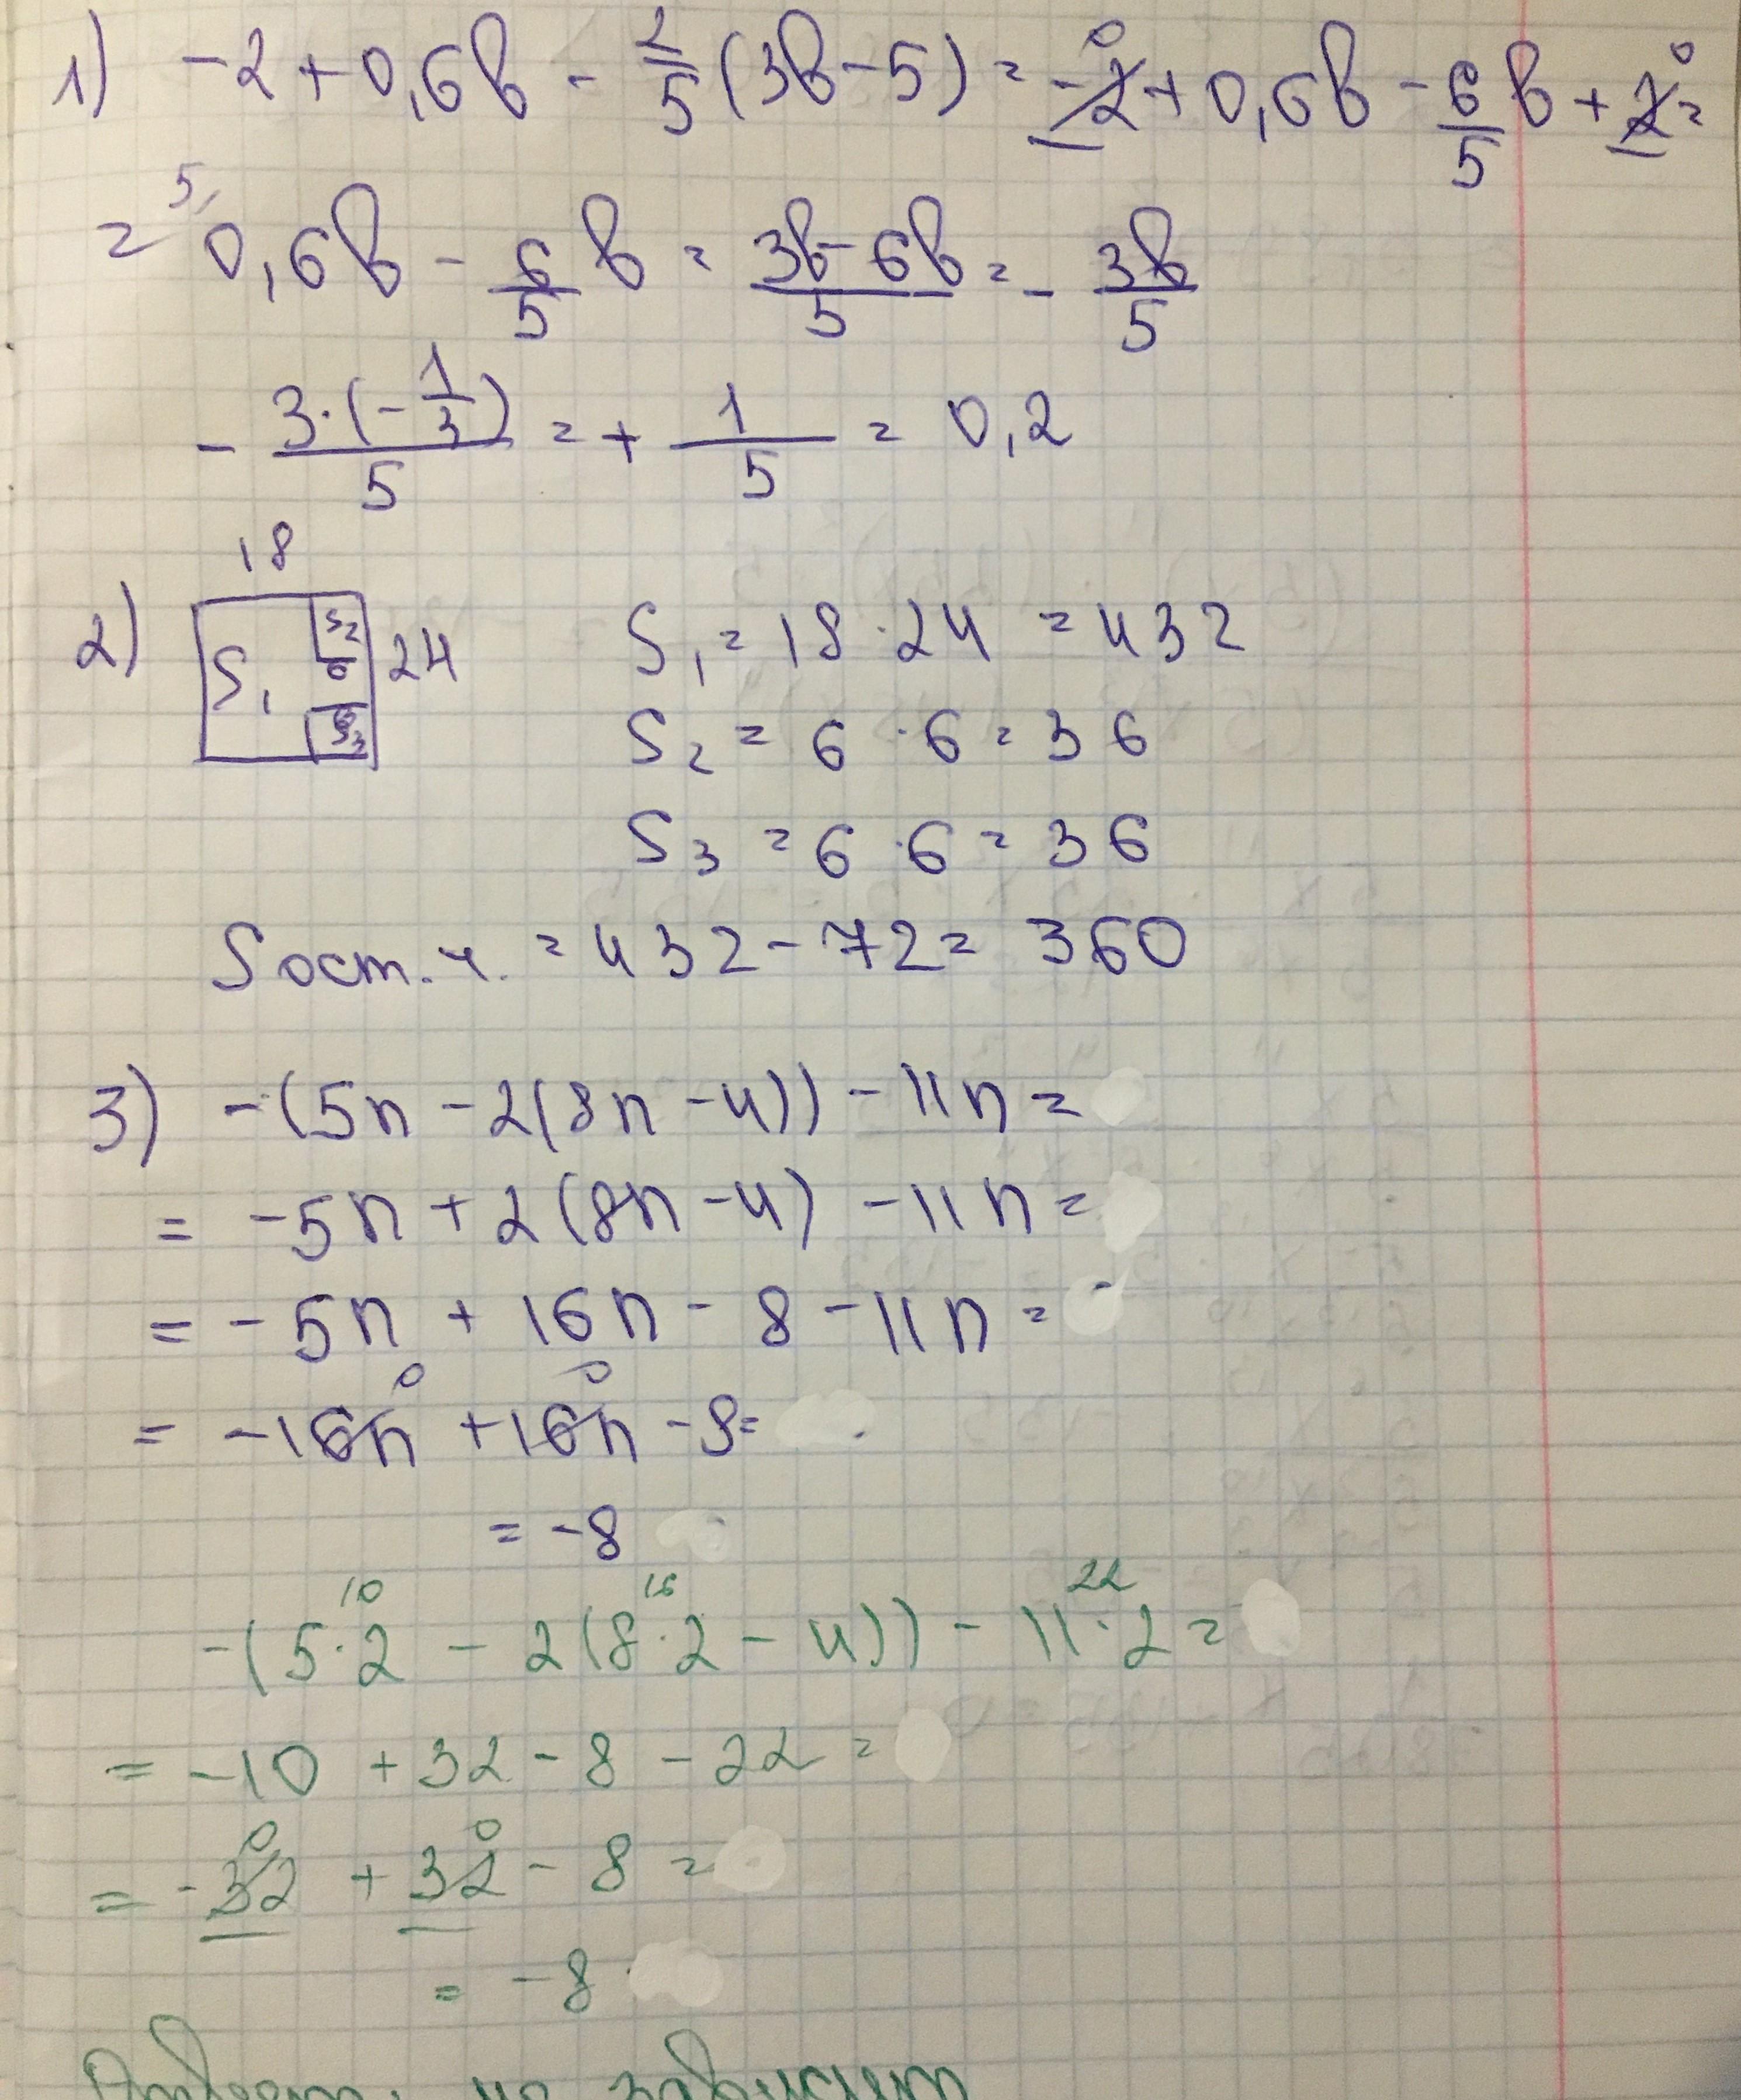 1) -2 + 0,6b - 2/5 (3b - 5) = -2 + 0,6b - 6/5 b + 2 =
0 0
5
= 0,6b - 6/5 b = (3b - 6b)/5 = - 3b/5
- (3·(-1/3))/5 = + 1/5 = 0,2
18
2) S₁ S₂ 6 S₃ 24 S₁ = 18·24 = 432
S₂ = 6·6 = 36
S₃ = 6·6 = 36
Sост.ч. = 432 - 72 = 360
3) -(5n - 2(8n - 4)) - 11n =
= -5n + 2(8n - 4) - 11n =
= -5n + 16n - 8 - 11n =
0 0
= -16n + 16n - 8 =
= -8
10 16 22
-(5·2 - 2(8·2 - 4)) - 11·2 =
= -10 + 32 - 8 - 22 =
0 0
= -32 + 32 - 8 =
= -8
Ответ: не зависит